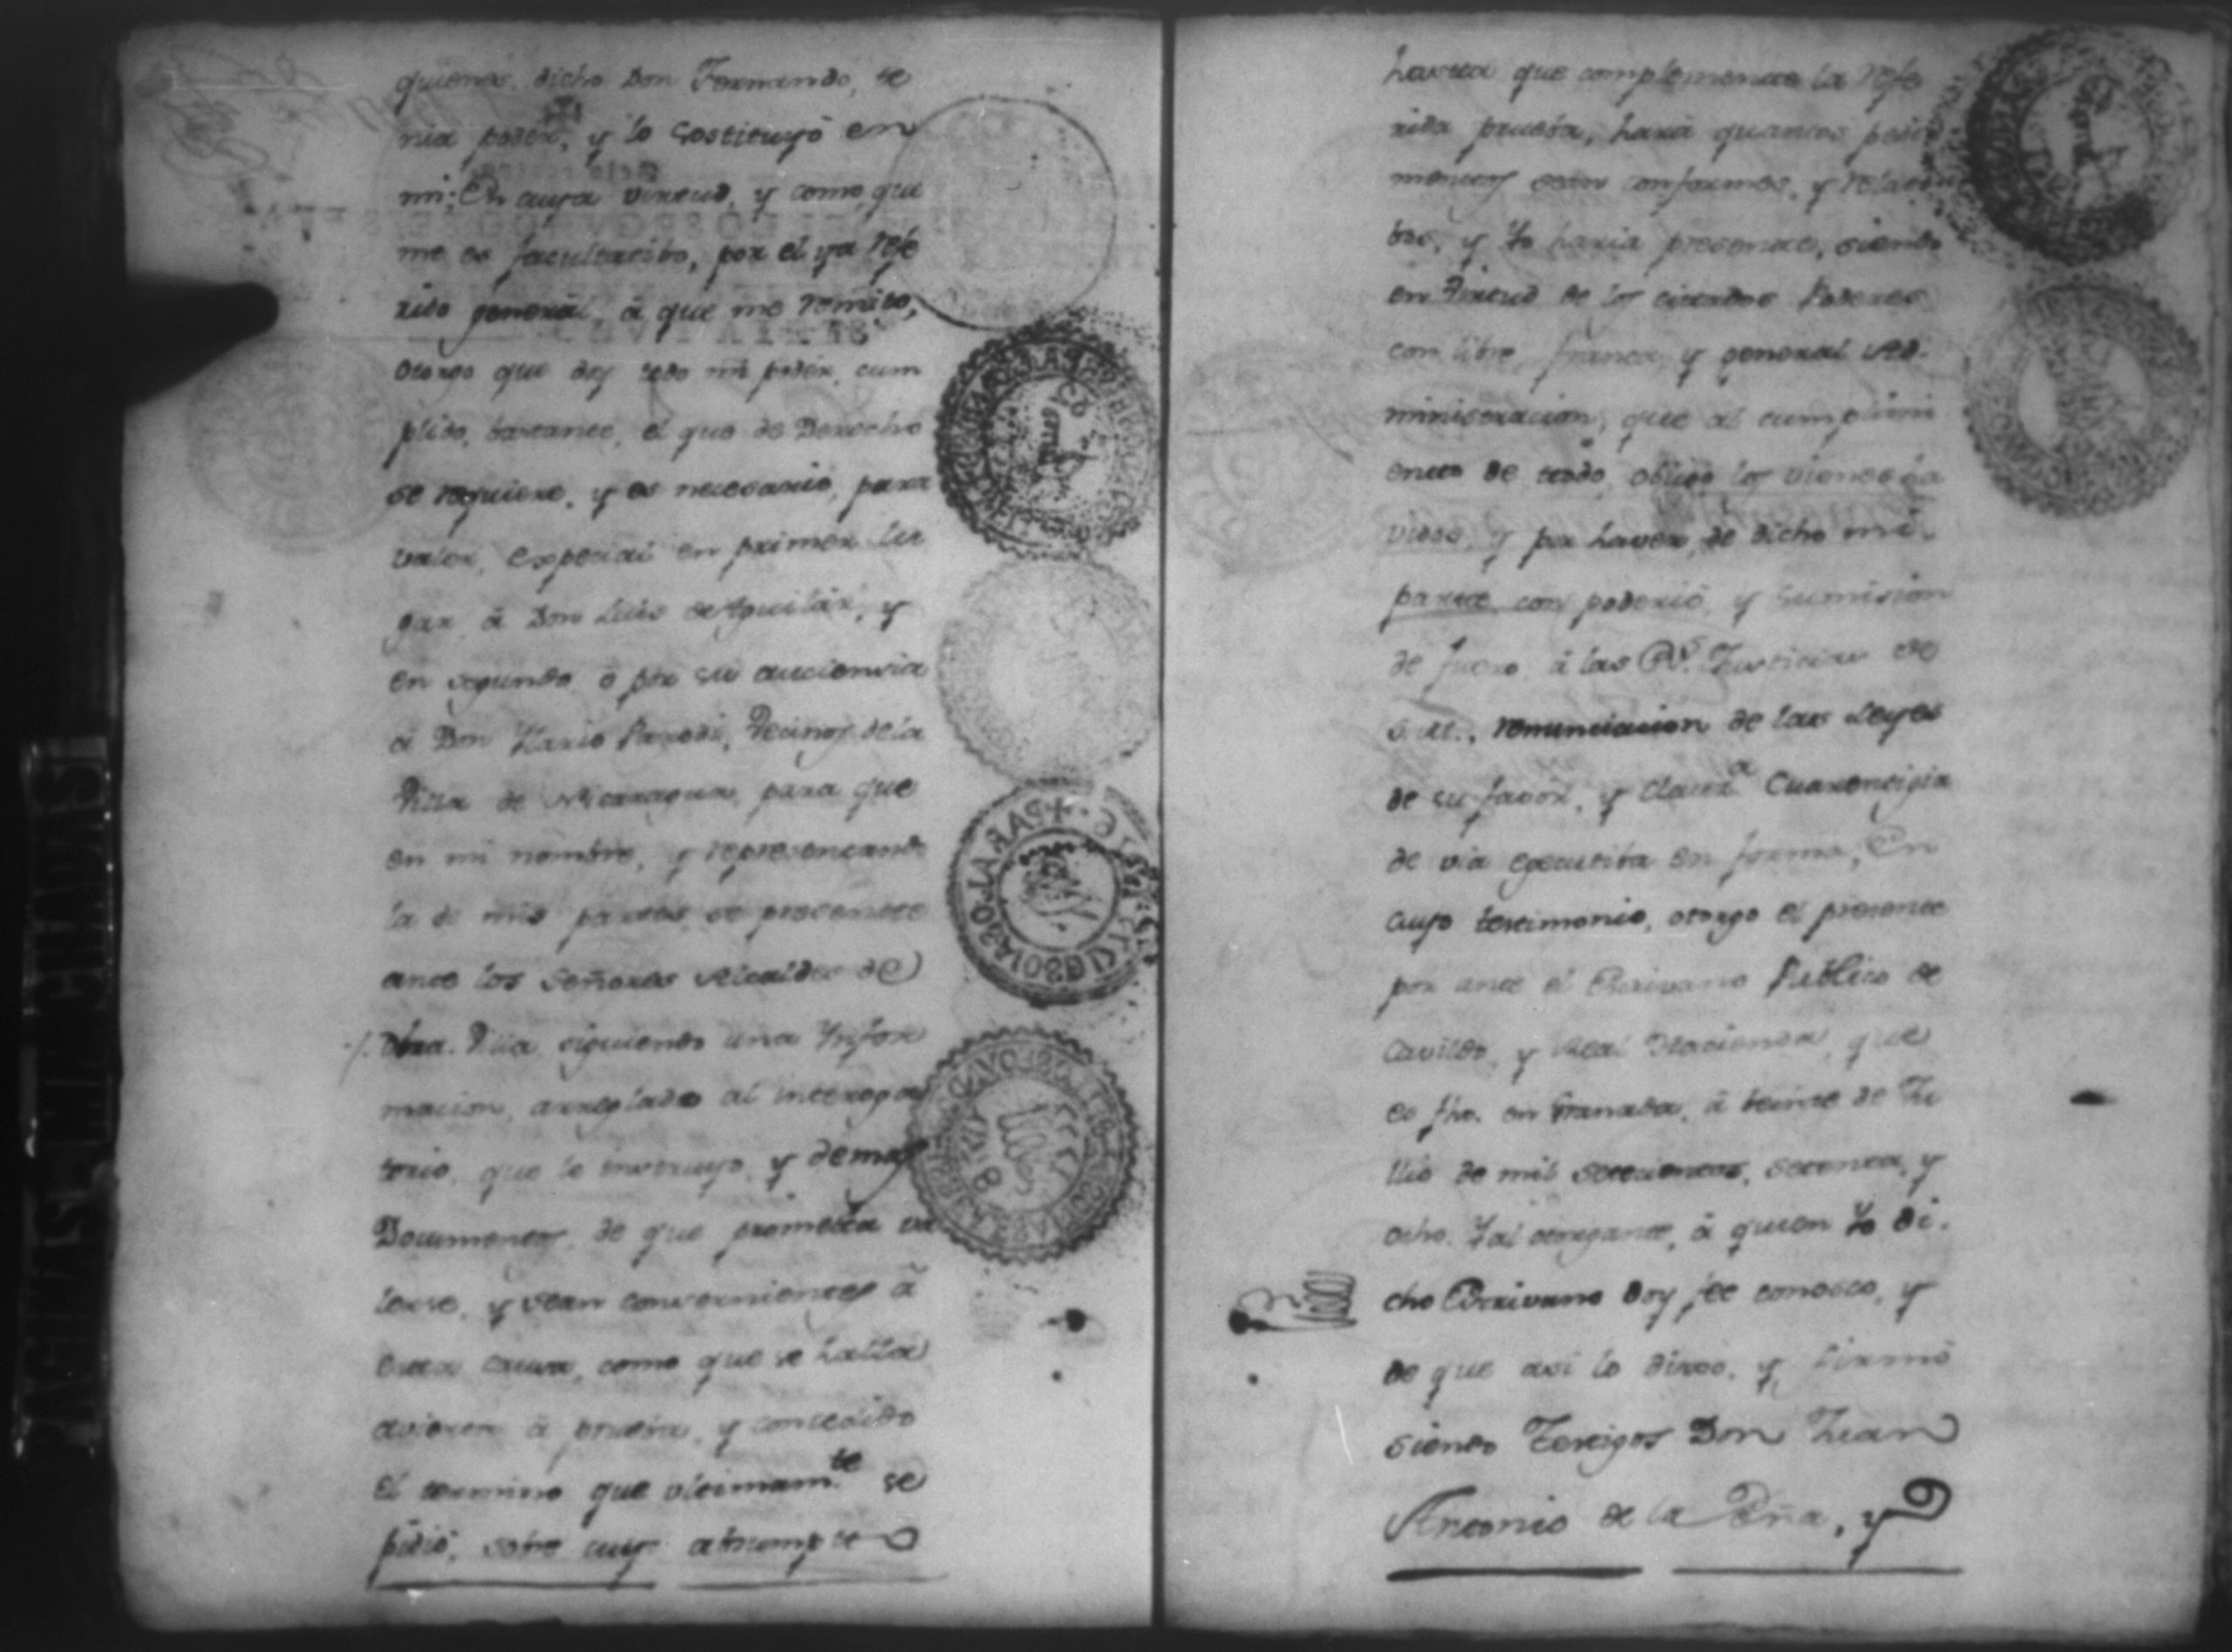 quienes dicho Don Fernando, te
nia poder, y lo sostituyó en
mi; En cuya virtud, y como que
me es facultatibo, por el ya refe
rido general, á que me remito,
otorgo que doy todo mi poder, cum
plido, bastante, el que de Derecho
se requiere, y es necesario, para
valer, especial en primer lu
gar á Don Luis de Aguilar, y
en segundo ó por su auciencia
á Don Parodi, Vecinos de la
Villa de Nicaragua, para que
en mi nombre, y representando
la de mis partes, se presente
ante los Señores Alcaldes de
dha. Villa siguiendo una Ynfor
macion, arreglado al interroga
torio, que le instruyo, y demas
Documentos, de que prometa va
lerse, y sean convenientes á
esta causa, como que se halla
á prueba, y concedido
el termino que ultimam.te se
pidió, sobre cuyo
hasta que complemente la refe
rida prueba, hará quantos pedi
mentos sean conformes, y relati
bos, y Yo haria presente, siendo
en virtud de los citados Poderes
con libre, franca, y general Ad-
ministracion, que al cumplimi
ento de todo, obligo los vienes ha
vidos, y por haver, de dicho mi
parte con poderio, y sumision
de fuero á las Rs. Justicias de
S.M., renunciacion de las Leyes
de su favor, y Claus.a Cuarentigia
de via egecutiba en forma; En
cuyo testimonio, otorgo el presente
por ante el Escrivano Publico de
Cavildo, y Real Hacienda, que
es fho. en Granada, á veinte de Ju
lio de mil setecientos, setenta, y
ocho. Y al otorgante, á quien Yo di-
cho Escrivano doy fee conosco, y
de que asi lo dixo, y firmó
siendo Testigos Don Juan
Antonio de la Peña, y